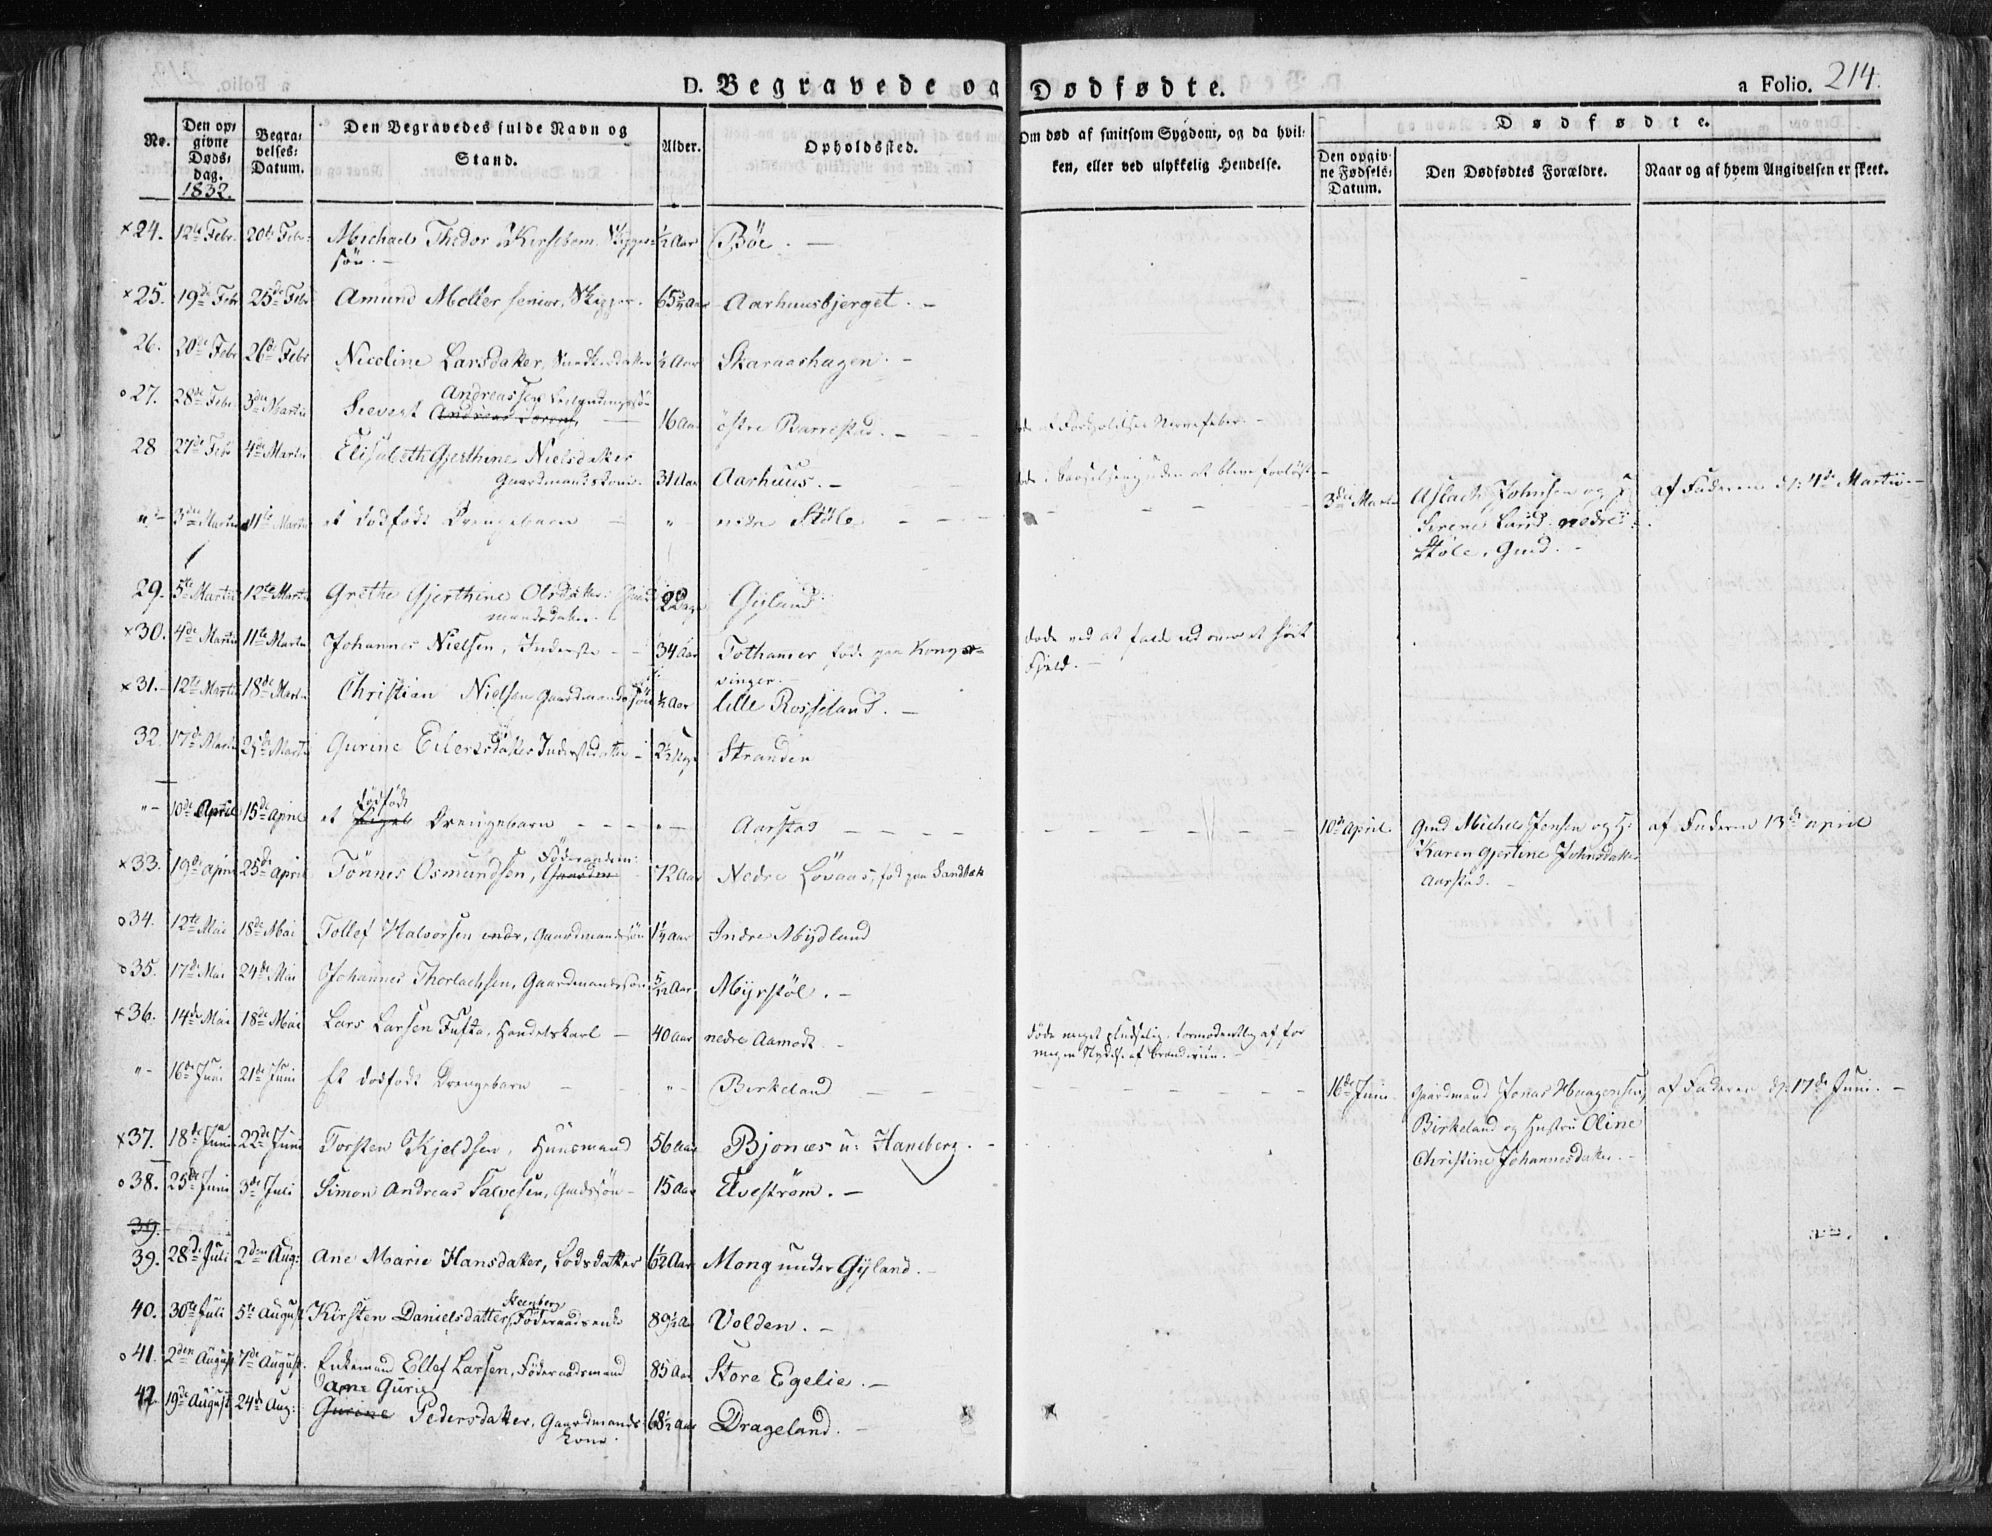 D. Begravede og Dødfødte.
a Folio. 214.
No.
Den opgivne Døds dag.
1832.
Begravelses Datum.
Den Begravedes fulde Navn og Stand.
Alder.
Opholdssted.
Om død af smitsom Sygdom, og da hvilken, eller ved ulykkelig Hendelse.
Dødfødte.
Den opgivne Fødsels Datum.
Den Dødfødtes Forældre.
Naar og af hvem Angivelsen er skeet.
×24. 12te Febr. 20de Febr. Michael Thedor Kirsebom, ½ Aar Bøe. —
søn. —
×25. 19de Febr 25de Febr Amund Moller senior, Skipper. 65 Aar Aarhuusbjerget. —
26. 20de Febr 26de Febr Nicoline Larsdatter, ½ Aar Skaraashagen. —
Andreassen
o27. 28de Febr 3die Martii Sievert 16 Aar østre Barrestad. — Nervefeber. —
28 27de Febr 4de Martii Elisabeth Gjerthine Nielsdatter
Gaardmandskone. 31 Aar Aarhuus. —
" 3die Martii 11te Martii et dødfødt Drengebarn — " nedre Støle — — — 3die Martii Aslach Johnsen og H. af Faderen d: 4de Martii. —
Sirene Larsd. nedre
Støle, Gmd. —
29. 5te Martii 12te Martii Grethe Gjerthine Olsdatter Gaard 2 Dage Gyland
mandsdatter.
×30. 4de Martii 11te Martii Johannes Nielsen, Inderste — 34 Aar Tothamer født paa Kongs- døde ved at falde ud over et høit
vinger. — Fjeld. —
×31. 12te Martii 18de Martii Christian Nielsen Gaardmandssøn ½ Aar lille Rosseland. —
32. 17de Martii 25de Martii Gurine Eilertsdatter Inderstdatter — 2½ Stranden
dødfødt
" — 10de April 15de April et Drengebarn — — — " — Aarstad — — — — 10de April. Gmd Michel Jensen og H: af Faderen 13de April
Karen Gjertine Johnsdatter
Aarstad. —
Føderaadsm:
×33. 19de April 25de April Tønnes Osmundsen, Gaardm 72 Aar Nedre Løvaas, fød paa Sandbæk
o34. 12te Mai 18de Mai Tollef Halvorsen indr, Gaardmandssøn 1¼ Aar Indre Mydland
o35. 17de Mai 24de Mai Johannes Thorlachsen, Gaardmandssøn 5/12 Aar Myrstøl. —
×36. 14de Mai 18de Mai Lars Larsen Tufto, Handelskarl — 40 Aar nedre Aamodt. — døde meget pludselig, formodentlig af for
megen Nydelse af Brændeviin. —
" — 16de Juni 21de Juni Et dødfødt Drengebarn — — " — Birkeland — — — — 16de Juni. Gaardmand Jonas Haagensen af Faderen d: 17de Juni. —
Birkeland og Hustru Oline
Christine Johannesdatter. —
×37. 18de Juni 22de Juni Torsten Kjeldsen, Huusmand 56 Aar Bjonæs u: Haneberg. —
o38. 25de Juni 3de Juli Simon Andreas Salvesen, Gmdssøn — 15 Aar Elvestrøm. —
39.
39. 28de Juli 2den Aug: Ane Marie Hansdatter, Lodsdatter 6½ Aar Mong under Gyland. —
Steenberg
40. 30te Juli 5te August Kirsten Danielsdatter, Føderaadsenke 89½ Aar Volden. —
o41. 2den August 7de August. Enkemand Ellef Larsen, Føderaadsmand 85 Aar Store Egelie. —
Ane Guru
42. 19de August 24de Aug: Gurine Pedersdatter, Gaardmands 68½ Aar Drageland. —
kone.